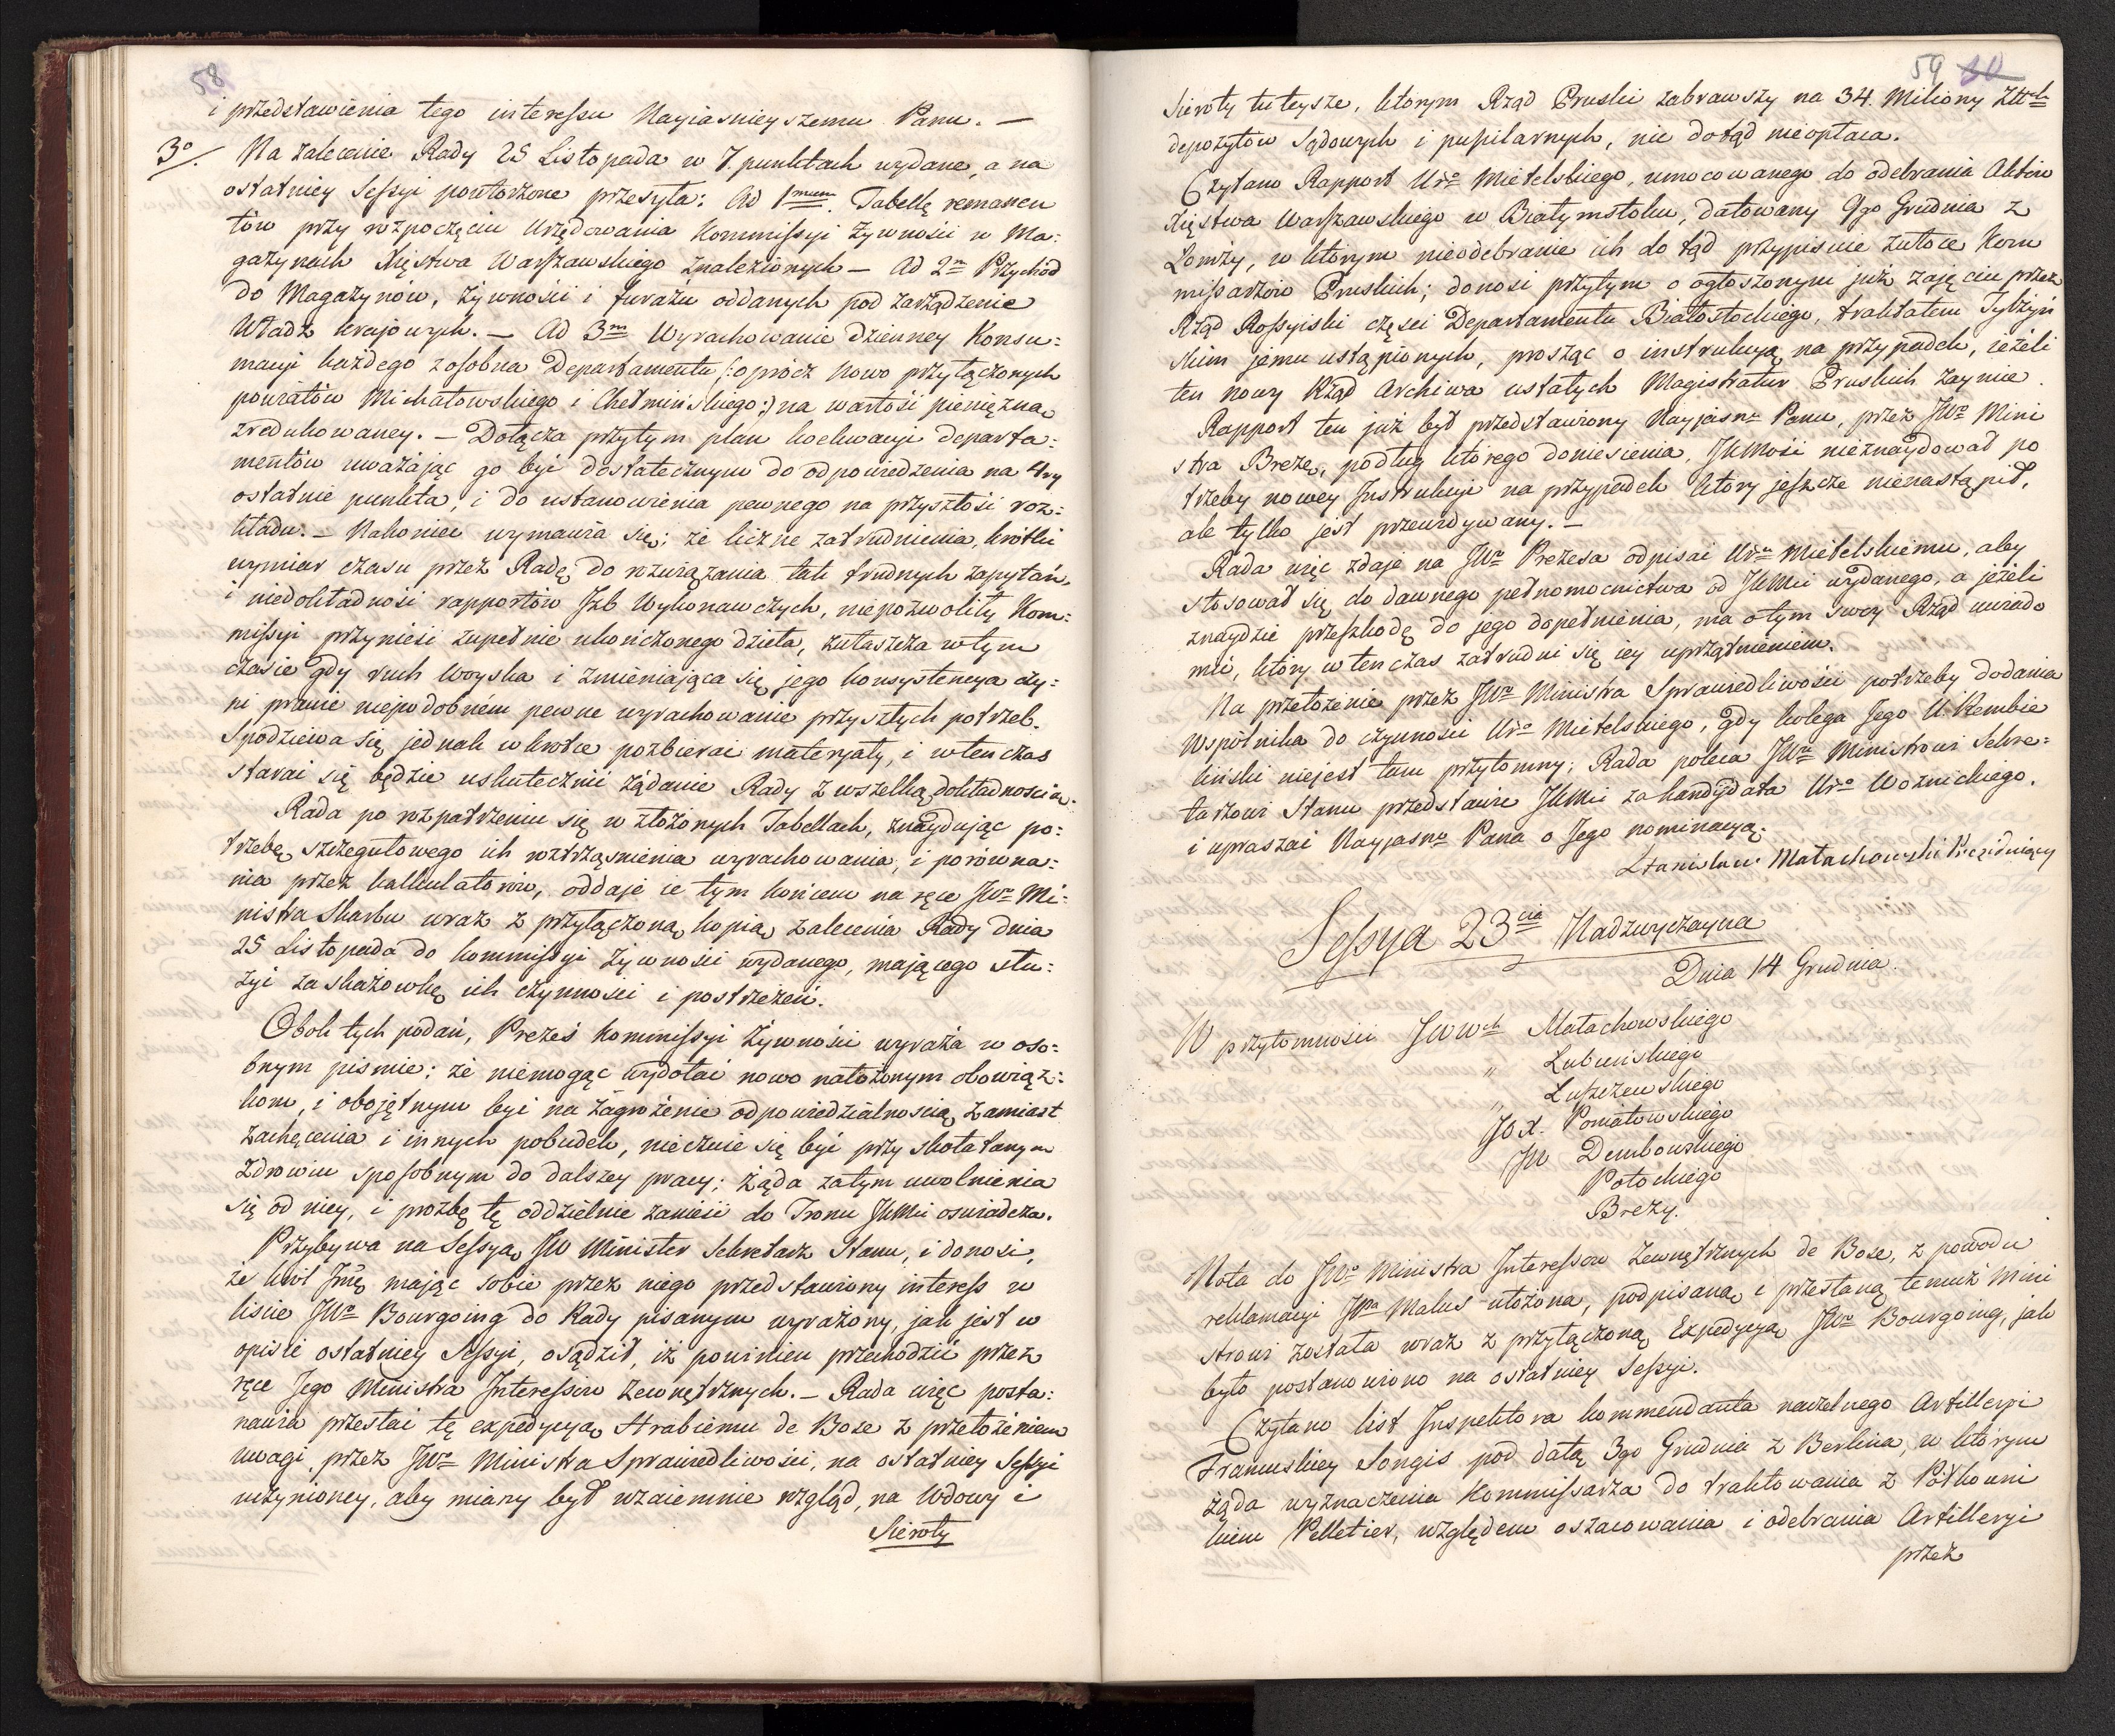 58
i przedstawienia tego interessu Nayiasnieyszemu Panu. —
3o/. Na zalecenie Rady 25 Listopada w 7. punktach wydane, a na
ostatniey Sessyi powtorzone przesyła: Ad 1mum. Tabellę remanen
tów przy rozpoczęciu Urzędowania Kommissyi Żywności w Ma:
gazynach Xięstwa Warszawskiego znalezionych — Ad 2m Przychód
do Magazynów, żywności i furażu oddanych pod zarządzenie
Władz krajowych. — Ad 3m Wyrachowanie dzienney Konsu:
mcyi każdego z osobna Departamentu /: oprócz nowo przyłączonych
powiatów Michałowskiego i Chełmińskiego :/ na wartość pieniężną
zredukowaney. — Dołącza przytym plan koekwacyi departa:
mentów uważając go być dostatecznym do odpowiedzenia na 4ry
ostatnie punkta, i do ustanowienia pewnego na przyszłość roz:
kładu. — Nakoniec wymawia się; że liczne zatrudnienia, krótki
wymiar czasu przez Radę do rozwiązania tak trudnych zapytań,
i niedokładność rapportów Izb Wykonawczych, niepozwoliły Kom:
missyi przynieść zupełnie ukończonego dzieła, zwłaszcza w tym
czasie gdy ruch Woyska i zmieniająca się jego konsystencya czy:
ni prawie niepodobném pewne wyrachowanie przyszłych potrzeb.
Spodziewa się jednak wkrotce pozbierać materyały, i wtenczas
starać się będzie uskutecznić żądanie Rady z wszelką dokładnoscią.
Rada po rozpatrzeniu się w złożonych Tabellach, znayduiąc po:
trzebę szczegułowego ich roztrząsnienia wyrachowania, i porówna:
nia przez kalkulatorów, oddaje ie tym końcem na ręce JWo Mi:
nistra Skarbu wraz z przyłączoną kopią zalecenia Rady dnia
25 Listopada do kommissyi Żywności wydanego, mającego słu:
żyć za skazówkę ich czynności i postrzeżeń.
Obok tych podań, Prezes Kommissyi Żywności wyraża w oso:
bnym pismie: że niemogąc wydołać nowo nałożonym obowiąz:
kom, i obojętnym być na zagrożenie odpowiedzialnością, zamiast
zachęcenia i innych pobudek, nieczuie się być przy skołatanym
zdrowiu sposobnym do dalszey pracy; żąda zatym uwolnienia
się od niey, i prozbę tę oddzielnie zanieść do Tronu JKMci oswiadcza.
Przybywa na Sessyą JW Minister Sekretarz Stanu, i donosi,
że Król Jmć, mając sobie przez niego przedstawiony interess w
liście JWo Bourgoing do Rady pisanym wyrażony, jak jest w
opisie ostatniey Sessyi, osądził, iż powinien przechodzić przez
ręce Jego Ministra Interessów Zewnętrznych. — Rada więc posta:
nawia przesłać tę expedycyą Hrabiemu de Bose z przełożeniem
uwagi, przez JWo Ministra Sprawiedliwości, na ostatniey Sessyi
uczynioney, aby miany był wzaiemnie wzgląd, na Wdowy i
Sieroty
59 60
Sieroty tuteysze, którym Rząd Pruski zabrawszy na 34. Miliony Złtch
depozytów Sądowych i pupilarnych, nic dotąd nieopłaca.
Czytano Rapport Uro Mietelskiego, umocowanego do odebrania Aktów
Xięstwa Warszawskiego w Białymstoku, datowany 9go Grudnia z
Łomży, w którym nieodebranie ich do tąd przypisuie zwłoce Kom
missarzów Pruskich; donosi przytym o ogłoszonym już zajęciu przez
Rząd Rossyiski części Departamentu Białostockiego, traktatem Tylżyń
skim jemu ustąpionych, prosząc o instrukcyą na przypadek, ieżeli
ten nowy Rząd Archiwa ustałych Magistratur Pruskich zaymie.
Rapport ten już był przedstawiony Nayjasno Panu, przez JWo Mini
stra Brezę, podług którego doniesienia, JKMość nieznaydował po
trzeby nowey Instrukcyi na przypadek który jeszcze nienastąpił,
ale tylko jest przewidywany. —
Rada więc zdaje na JWo Prezesa odpisać Uro Mietelskiemu, aby
stosował się do dawnego pełnomocnictwa od JKMci wydanego, a jeżeli
znaydzie przeszkodę do jego dopełnienia, ma o tym swoy Rząd uwiado
mić, który w ten czas zatrudni się iey uprzątnieniem.
Na przełożenie przez JWo Ministra Sprawiedliwości potrzeby dodania
Wspólnika do czynności Uro Mietelskiego, gdy kolega Jego U. Rembie
liński niejest tam przytomny; Rada poleca JWo Ministrowi Sekre:
tarzowi Stanu przedstawić JKMci za kandydata Uro Woznickiego,
i upraszać Nayjasno Pana o Jego nominacyą.
Stanisław Małachowski Prezydujący
Sessya 23cia Nadzwyczayna
Dnia 14 Grudnia.
W przytomności JWWch Małachowskiego
„ Lubieńskiego
„ Łuszczewskiego
JOX. Poniatowskiego
JW Dembowskiego
Potockiego
Brezy.
Nota do JWo Ministra Interessow Zewnętrznych de Bose, z powodu
reklamacyi JPa Malus ułożona, podpisaną i przesłaną temuż Mini
strowi została wraz z przyłączoną Expedycyą JWo Bourgoing, jak
było postanowiono na ostatniey Sessyi.
Czytano list Inspektora kommendanta naczelnego Artilleryi
Francuskiey Songis pod datą 3go Grudnia z Berlina, w którym
żąda wyznaczenia Kommissarza do traktowania z Półkowni
kiem Pelletier, względem oszacowania i odebrania Artilleryi
przez